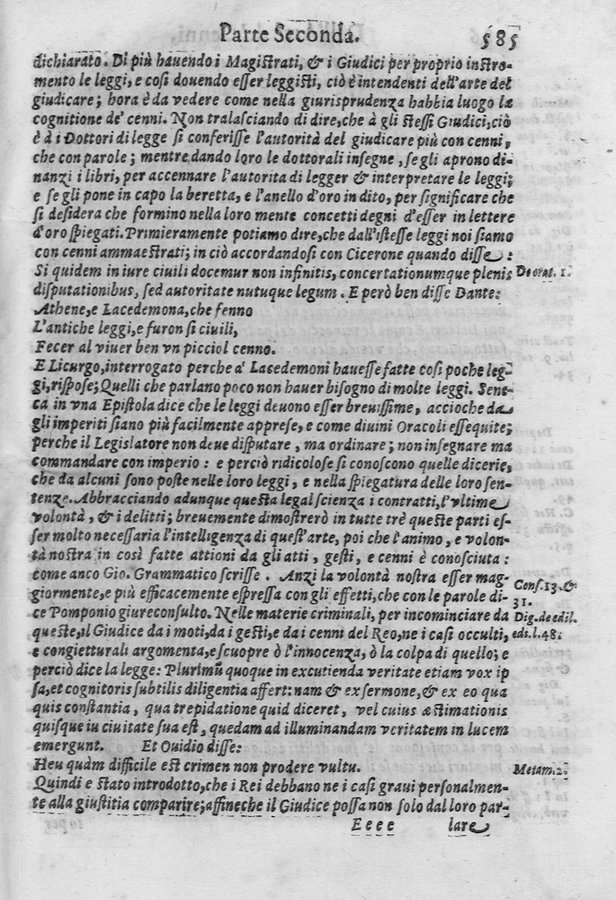 Parte Seconda. 585
dichiarato. Di più hauendo i Magistrati, & i Giudici per proprio instro-
mento le leggi, e cosi douendo esser leggisti, ciò è intendenti dell'arte del
giudicare; hora è da vedere come nella giurisprudenza habbia luogo la
cognitione de' cenni. Non tralasciando di dire, che à gli stessi Giudici, ciò
è à i Dottori di legge si conferisse l'autorità del giudicare più con cenni,
che con parole; mentre dando loro le dottorali insegne, se gli aprono di-
nanzi i libri, per accennare l'autorita di legger & interpretare le leggi;
e se gli pone in capo la beretta, e l'anello d'oro in dito, per significare che
si desidera che formino nella loro mente concetti degni d'esser in lettere
d'oro spiegati. Primieramente potiamo dire, che dall'istesse leggi noi siamo
con cenni ammaestrati; in ciò accordandosi con Cicerone quando disse:
Si quidem in iure ciuili docemur non infinitis, concertationumque plenis De orat. 1.
disputationibus, sed autoritate nutuque legum. E però ben disse Dante:
Athene, e Lacedemona, che fenno
L'antiche leggi, e furon si ciuili,
Fecer al viuer ben vn picciol cenno.
E Licurgo, interrogato perche a' Lacedemoni hauesse fatte cosi poche leg-
gi, rispose; Quelli che parlano poco non hauer bisogno di molte leggi. Sene-
ca in vna Epistola dice che le leggi deuono esser breuissime, accioche da
gli imperiti siano più facilmente apprese, e come diuini Oracoli essequite;
perche il Legislatore non deue disputare, ma ordinare; non insegnare ma
commandare con imperio: e perciò ridicolose si conoscono quelle dicerie,
che da alcuni sono poste nelle loro leggi, e nella spiegatura delle loro sen-
tenze. Abbracciando adunque questa legal scienza i contratti, l'vltime
volontà, & i delitti; breuemente dimostrerò in tutte trè queste parti es-
ser molto necessaria l'intelligenza di quest'arte, poi che l'animo, e volon-
tà nostra in così fatte attioni da gli atti, gesti, e cenni è conosciuta:
come anco Gio. Grammatico scrisse. Anzi la volontà nostra esser mag- Cons. 13. &
giormente, e più efficacemente espressa con gli effetti, che con le parole di- 31.
ce Pomponio giureconsulto. Nelle materie criminali, per incominciare da Dig. de edil.
queste, il Giudice da i moti, da i gesti, e da i cenni del Reo, ne i casi occulti, edi. l. 48.
e congietturali argomenta, e scuopre ò l'innocenza, ò la colpa di quello; e
perciò dice la legge: Plurimũ quoque in excutienda veritate etiam vox ip
sa, et cognitoris subtilis diligentia affert: nam & ex sermone, & ex eo qua
quis constantia, qua trepidatione quid diceret, vel cuius æstimationis
quisque in ciuitate sua est, quedam ad illuminandam veritatem in lucem
emergunt. Et Ouidio disse:
Heu quàm difficile est crimen non prodere vultu. Metam. 2.
Quindi e stato introdotto, che i Rei debbano ne i casi graui personalmen-
te alla giustitia comparire; affineche il Giudice possa non solo dal loro par-
Eeee lare